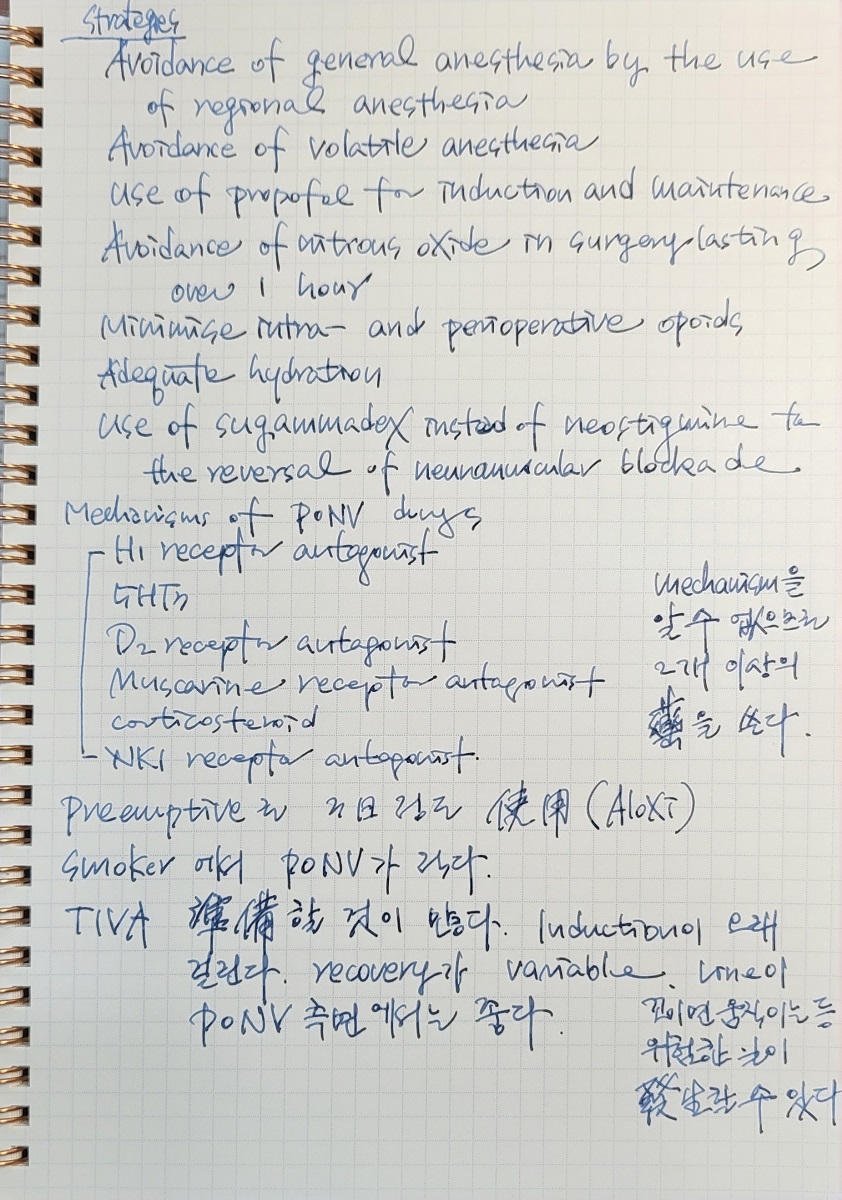 Strategies
Avoidance of general anesthesia by the use
of regional anesthesia
Avoidance of volatile anesthesia
Use of propofol for induction and maintenance
Avoidance of nitrous oxide in surgery lasting
over 1 hour
Minimise intra- and perioperative opoids
Adequate hydration
Use of sugammadex instead of neostigmine to
the reversal of neuromuscular blockade
Mechanisms of PONV drugs
H1 receptor antagonist
5HT3
D2 receptor antagonist
Muscarine receptor antagonist
corticosteroid
NK1 receptor antagonist.
mechanism을
알 수 없으므로
2개 이상의
藥을 쓴다.
Preemptive로 2일 정도 使用 (Aloxi)
Smoker에서 PONV가 적다.
TIVA 準備할 것이 많다. Induction이 오래
걸린다. recovery가 variable.
PONV 측면에서는 좋다.
line이
꼬이면 움직이는 등
위험한 일이
發生할 수 있다